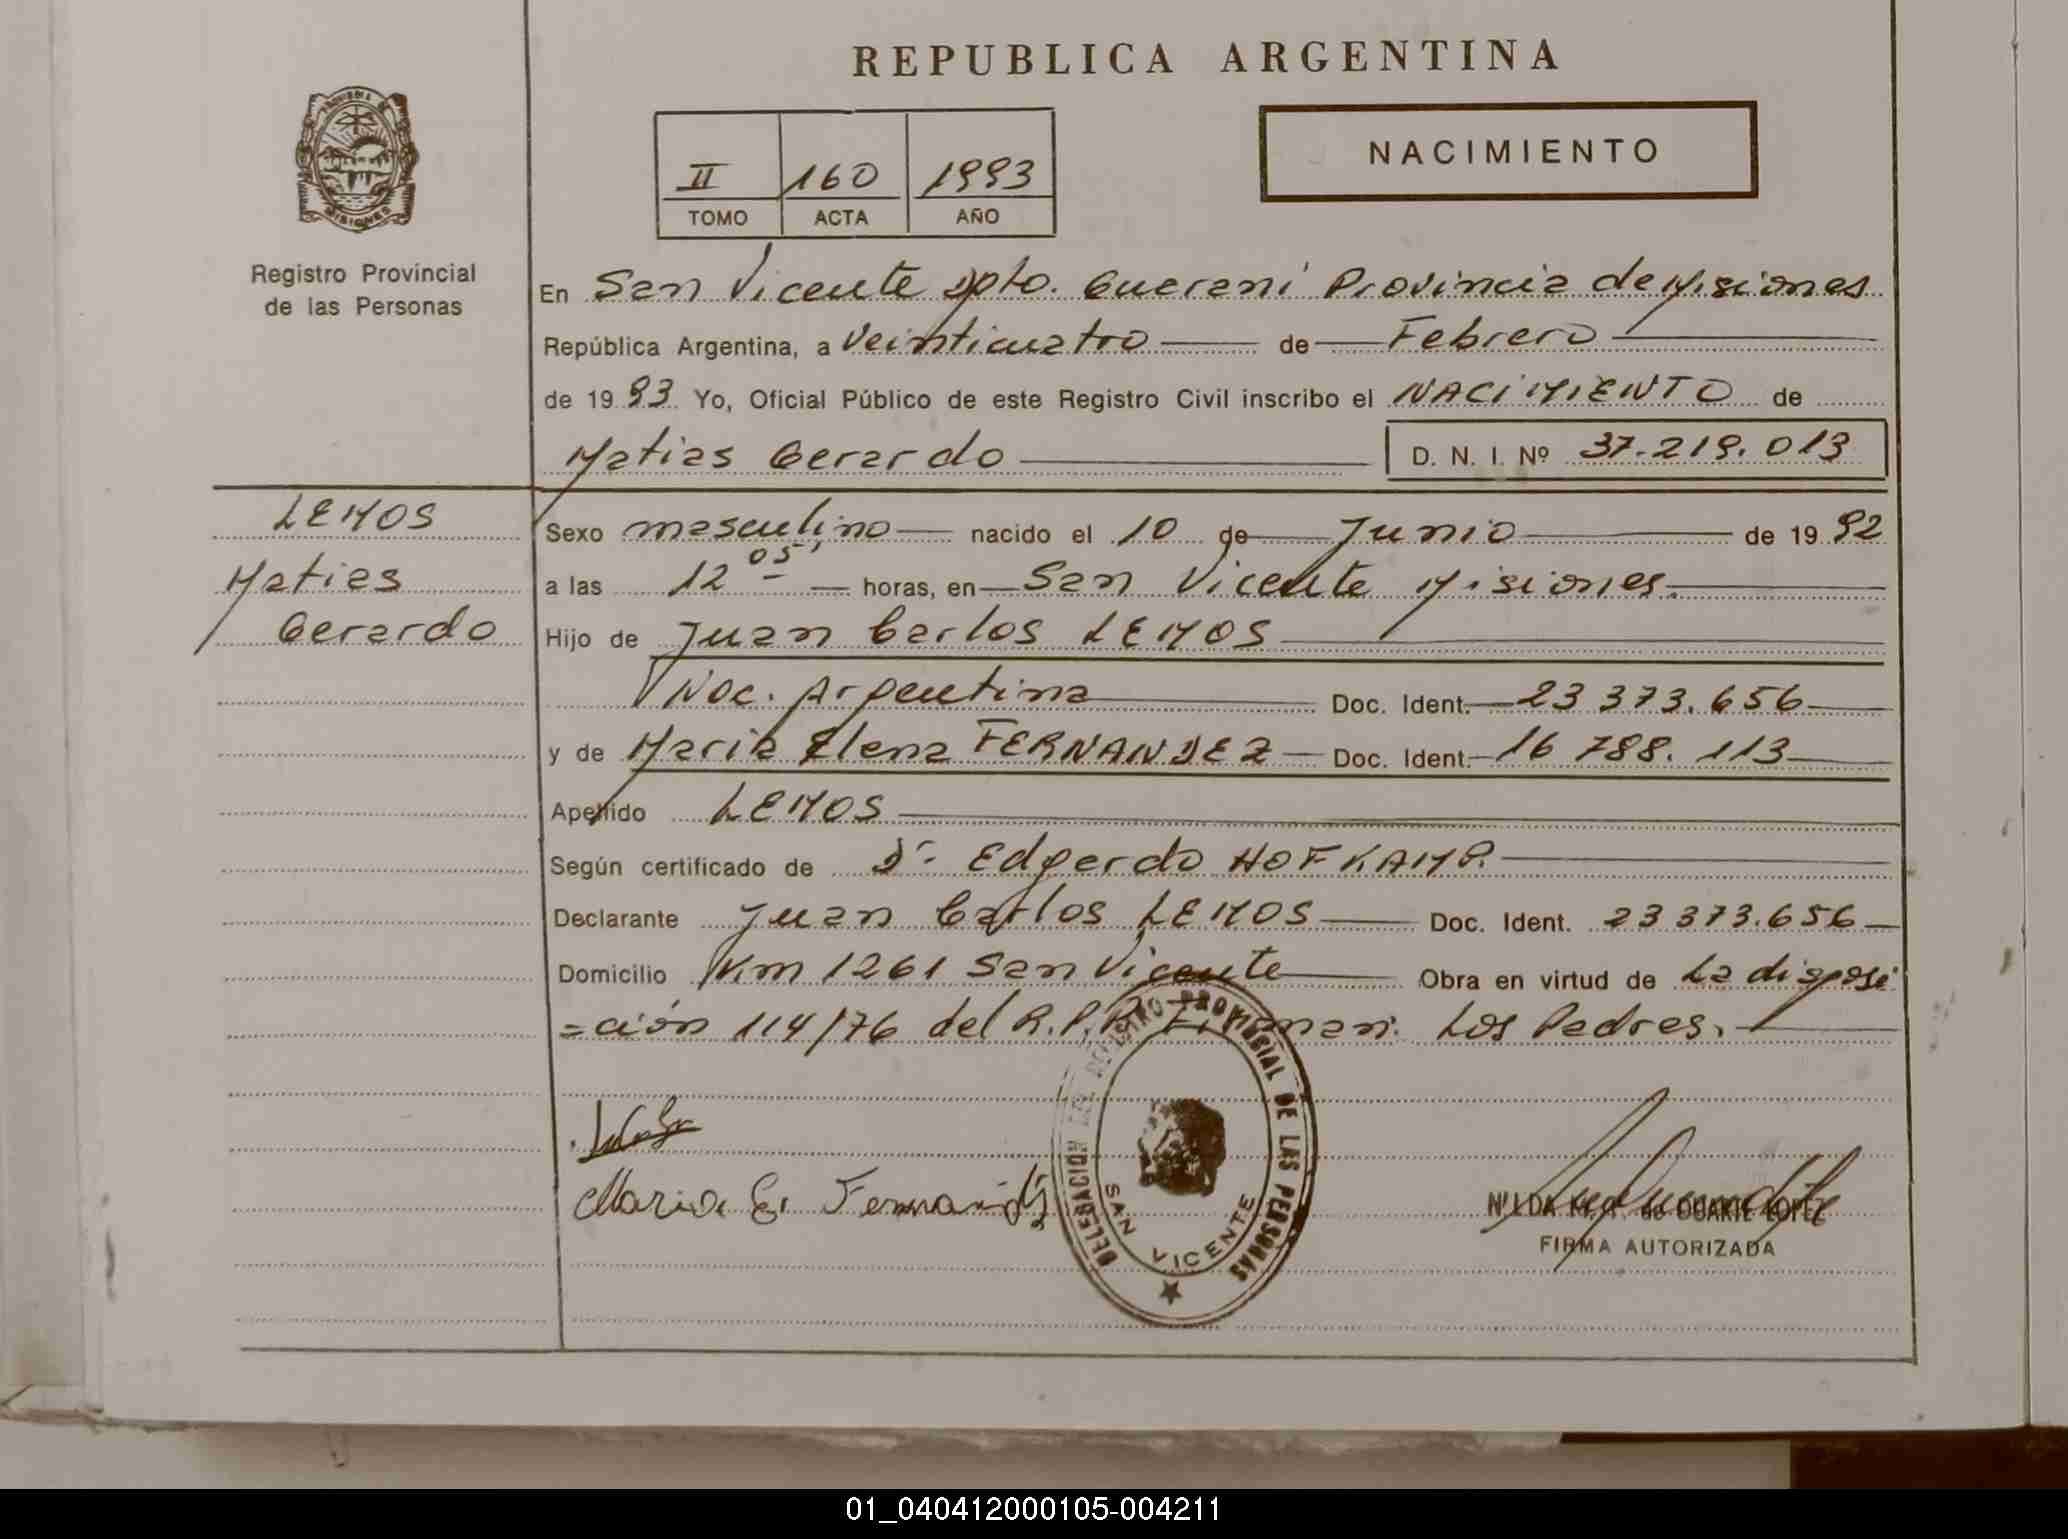 REPUBLICA ARGENTINA
PROVINCIA DE
MISIONES
Registro Provincial
de las Personas
II 160 1993
TOMO ACTA AÑO
NACIMIENTO
En San Vicente Dpto. Guarani Provincia de Misiones
República Argentina, a Veinticuatro de Febrero
de 1993 Yo, Oficial Público de este Registro Civil inscribo el NACIMIENTO de
Matias Gerardo D. N. I. Nº 37.219.013
LEMOS
Matias
Gerardo
Sexo masculino nacido el 10 de Junio de 1992
a las 12 05 horas, en San Vicente Misiones.
Hijo de Juan Carlos LEMOS
Nac. Argentina Doc. Ident. 23 373.656
y de Maria Elena FERNANDEZ Doc. Ident. 16 788.113
Apellido LEMOS
Según certificado de Dr. Edgardo HOFKAMP.
Declarante Juan Carlos LEMOS Doc. Ident. 23 373.656
Domicilio Km 1261 San Vicente Obra en virtud de La disposi
=ción 114/76 del R.P.P. Firman: Los Padres.
Maria E. Fernandez
DELEGACION DEL REGISTRO PROVINCIAL DE LAS PERSONAS
SAN VICENTE
NILDA de DUARTE LOPEZ
FIRMA AUTORIZADA
01_040412000105-004211